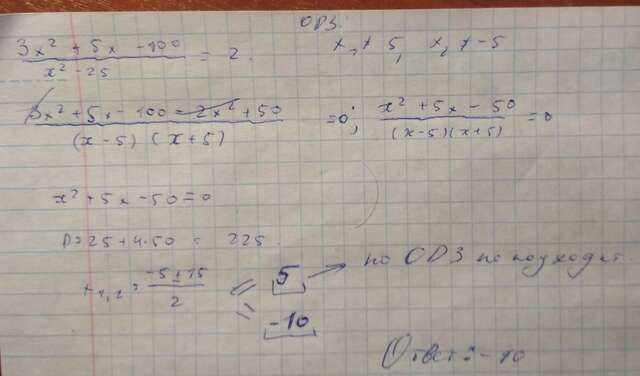 ОДЗ.
(3x² + 5x - 100)/(x² - 25) = 2. x₁ ≠ 5, x₂ ≠ -5
(3x² + 5x - 100 - 2x² + 50)/((x - 5)(x + 5)) = 0; (x² + 5x - 50)/((x - 5)(x + 5)) = 0
x² + 5x - 50 = 0
D = 25 + 4·50 = 225
x₁,₂ = (-5 ± 15)/2 = 5 → по ОДЗ не подходит.
= -10
Ответ: -10